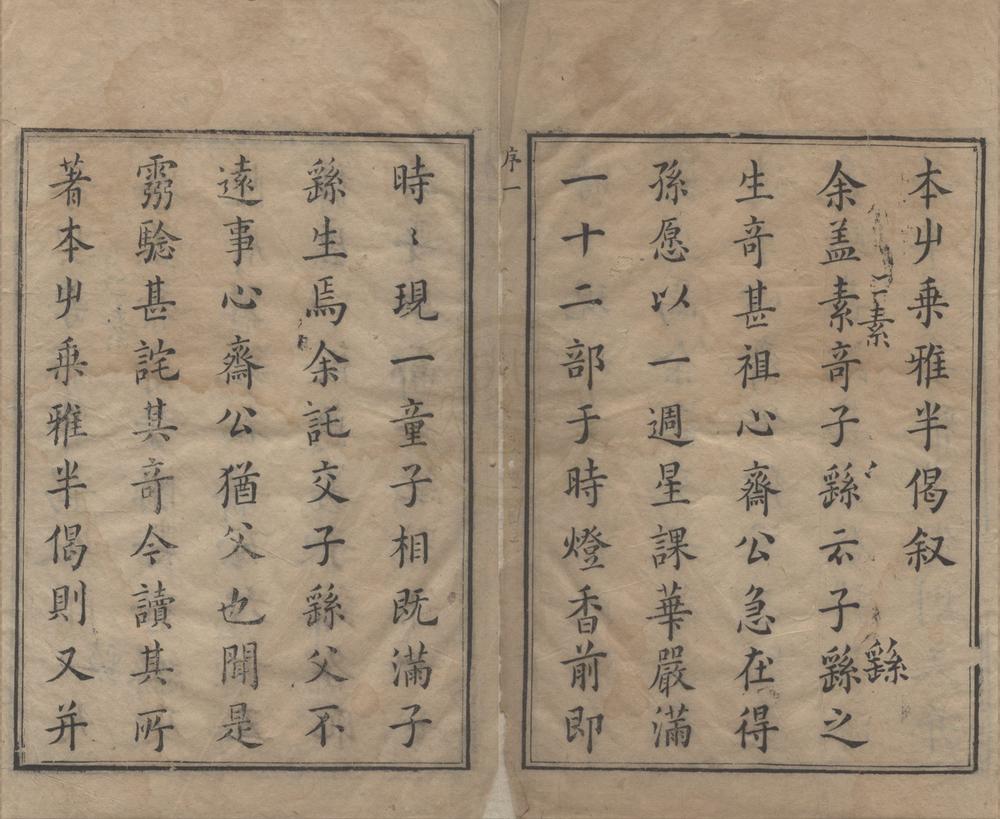 本屮乗雅半偈叙
余盖素竒子繇云子繇之
生竒甚祖心齋公急在得
孫愿以一週星課華嚴滿
一十二部于時燈香前即
時〻現一童子相既滿子
繇生焉余託交子繇父不
遠事心齋公猶父也聞是
霛騐甚詫其竒今讀其所
著本屮乗雅半偈則又并
序一
二素
繇